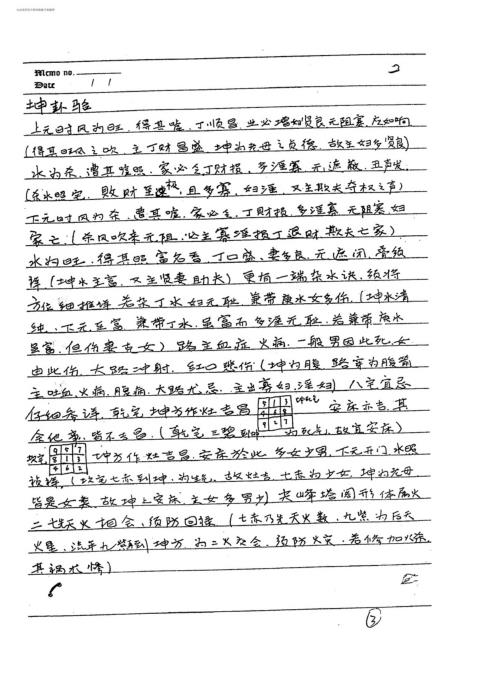 Memo no.
Date / /
2
坤卦 路
上元时风为旺,得其嘘,丁顺昌,业必增,妇贤良,元阻塞,应如响
(得其旺风之吹,主丁财昌盛,坤为老母之贞德,故主妇多贤良)
水为杀,遭其照,家必主丁财损,多淫寡,元遮蔽,丑声发,
(杀水照定,败财至速极,且多寡,妇淫,又主欺夫夺权之声)
下元时风为杀,遭其嘘,家必主丁财损,多淫寡,元阻塞,妇
家亡,(杀风吹来元阻,必主寡淫损丁退财欺夫亡家)
水为旺,得其照,富名香,丁口盛,妻多良,元遮闭,
祥(坤水主富,又主贤妻助夫)更有一端杂水诀,须将
方位细推祥,若杂丁水妇元耻,兼带庚水女多伤,(坤水清
纯,下元巨富,兼带丁水,虽富而多淫元耻,若兼带庚水
虽富,但伤妻克女)路主血症,火病,一般男因此死,女
由此伤,大路冲射,红口悲伤(坤为腹,路穿为腹前
主吐血,火病,腹病,大路尤忌,主出寡妇,淫妇)八宅宜忌
仔细参详,乾宅坤方作灶吉昌 安床亦吉,其
余他事,皆不吉昌,(乾宅三碧到坤 为死气,故宜安床)
坎宅 坤方作灶吉昌,安床於此,多女少男,下元开门,水照
祯祥,(坎宅七赤到坤,为生气,故灶吉,七赤为少女,坤为老母
皆是女妻,故坤上安床,主女多男少)尖峰塔阁形体属火
二七先天火相会,须防回禄(七赤乃先天火数,九紫为后天
火星,流年九紫到坤方,为二火交会,须防火灾,若修加火杀,
其祸尤惨)
③